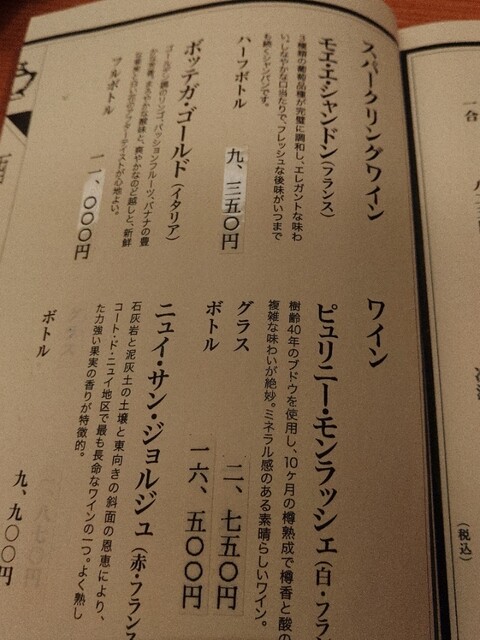 スパークリングワイン
モエ・エ・シャンドン（フランス）
3種類の葡萄品種が完璧に調和し、エレガントな味わ
い。しなやかな口当たりで、フレッシュな後味がいつまで
も続くシャンパンです。
ハーフボトル 九、三五〇円
ボッテガ・ゴールド（イタリア）
ゴールデン調のリンゴ、パッションフルーツ、バナナの豊
フルボトル 一一、〇〇〇円
ワイン
ピュリニー・モンラッシェ（白・フラ
樹齢40年のブドウを使用し、10ヶ月の樽熟成で樽香と酸の
複雑な味わいが絶妙。ミネラル感のある素晴らしいワイン。
グラス 二、七五〇円
ボトル 一六、五〇〇円
ニュイ・サン・ジョルジュ（赤・フランス
石灰岩と泥灰土の土壌と東向きの斜面の恩恵により、
コート・ド・ニュイ地区で最も長命なワインの一つ。よく熟し
た力強い果実の香りが特徴的。
ボトル 九、九〇〇円
一合
（税込）